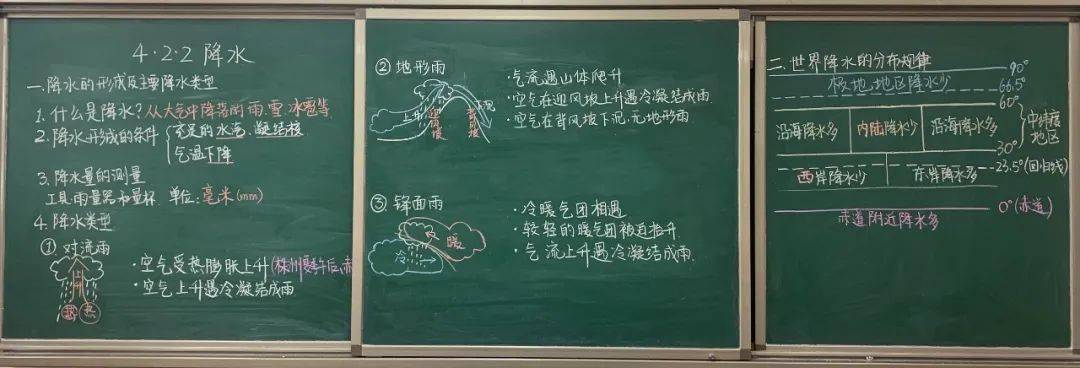 4·2·2 降水
一.降水的形成及主要降水类型
1.什么是降水？从大气中降落的雨.雪.冰雹等
2.降水形成的条件 { 充足的水汽、凝结核
气温下降
3.降水量的测量
工具:雨量器和量杯. 单位:毫米(mm)
4.降水类型
① 对流雨
·空气受热膨胀上升(株州夏季午后,赤
·空气上升遇冷凝结成雨
上升
热
② 地形雨
·气流遇山体爬升
·空气在迎风坡上升遇冷凝结成雨
·空气在背风坡下沉.无地形雨
上升 迎风坡 背风坡 下沉
③ 锋面雨
·冷暖气团相遇
·较轻的暖气团被迫抬升
·气流上升遇冷凝结成雨
暖
冷
二.世界降水的分布规律
90°
极地地区降水少
66.5°
60°
沿海降水多 内陆降水少 沿海降水多 中纬度地区
30°
西岸降水少 东岸降水多 23.5°(回归线)
赤道附近降水多 0°(赤道)